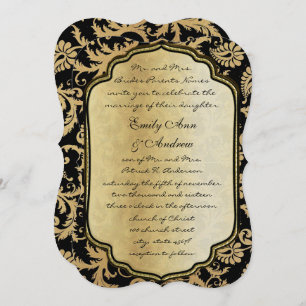 Mr. and Mrs.
Brides Parents Names
invite you to celebrate the
marriage of their daughter
Emily Ann
& Andrew
son of Mr. and Mrs.
Patrick H. Anderson
saturday the fifth of november
two thousand and eleven
three o clock in the afternoon
church of Christ
100 church street
city, state 45697
reception to follow